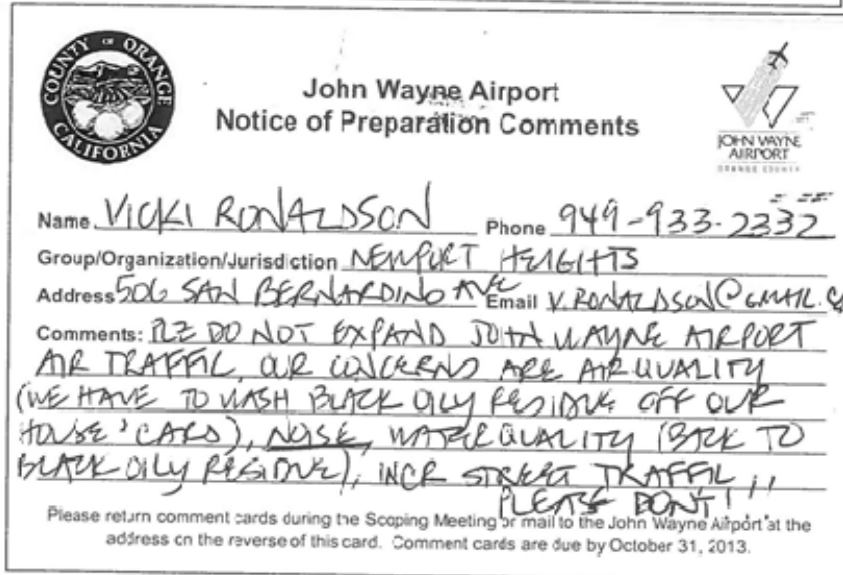 COUNTY OF ORANGE
CALIFORNIA
John Wayne Airport
Notice of Preparation Comments
JOHN WAYNE
AIRPORT
ORANGE COUNTY
Name VICKI RONALDSON Phone 949-933-2332
Group/Organization/Jurisdiction NEWPORT HEIGHTS
Address 506 SAN BERNARDINO AVE Email V.RONALDSON@GMAIL.
Comments: PLZ DO NOT EXPAND JOHN WAYNE AIRPORT
AIR TRAFFIC, OUR CONCERNS ARE AIR QUALITY
(WE HAVE TO WASH BLACK OILY RESIDUE OFF OUR
HOUSE & CARS), NOISE, WATER QUALITY (BACK TO
BLACK OILY RESIDUE), INCR STREET TRAFFIC,
PLEASE DON'T!!
Please return comment cards during the Scoping Meeting or mail to the John Wayne Airport at the
address on the reverse of this card. Comment cards are due by October 31, 2013.